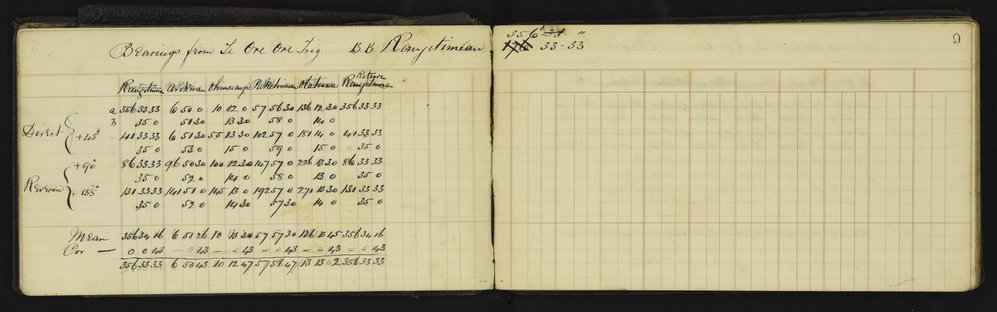 Bearings from Te Ore Ore Trig B.B Rangitumau
Return
Rangitumau Otahoua Rangitumau
a 356 33 33 6 50 0 10 12 0 57 56 30 136 12 30 356 33 33
B 35 0 51 30 13 30 58 0 14 0
Direct +45° 41 33 33 6 51 30 55 13 30 102 57 0 181 14 0 41 33 33
35 0 53 0 15 0 59 0 15 0 35 0
+90° 86 33 33 96 50 30 100 12 30 147 57 0 226 13 30 86 33 33
35 0 52 0 14 0 58 0 13 0 35 0
Reverse + 135° 131 33 33 141 51 0 145 13 0 192 57 0 271 13 30 131 33 33
35 0 52 0 14 30 57 30 14 0 35 0
Mean 356 34 16 6 51 26 10 13 30 57 57 30 136 13 45 356 34 16
Cor — 0 0 43 — 0 43 — 0 43 — 0 43 — 0 43 — 0 43
356 33 33 6 50 43 10 12 47 57 56 47 13 13 02 356 33 33
356° 33 "
176 33-33
9